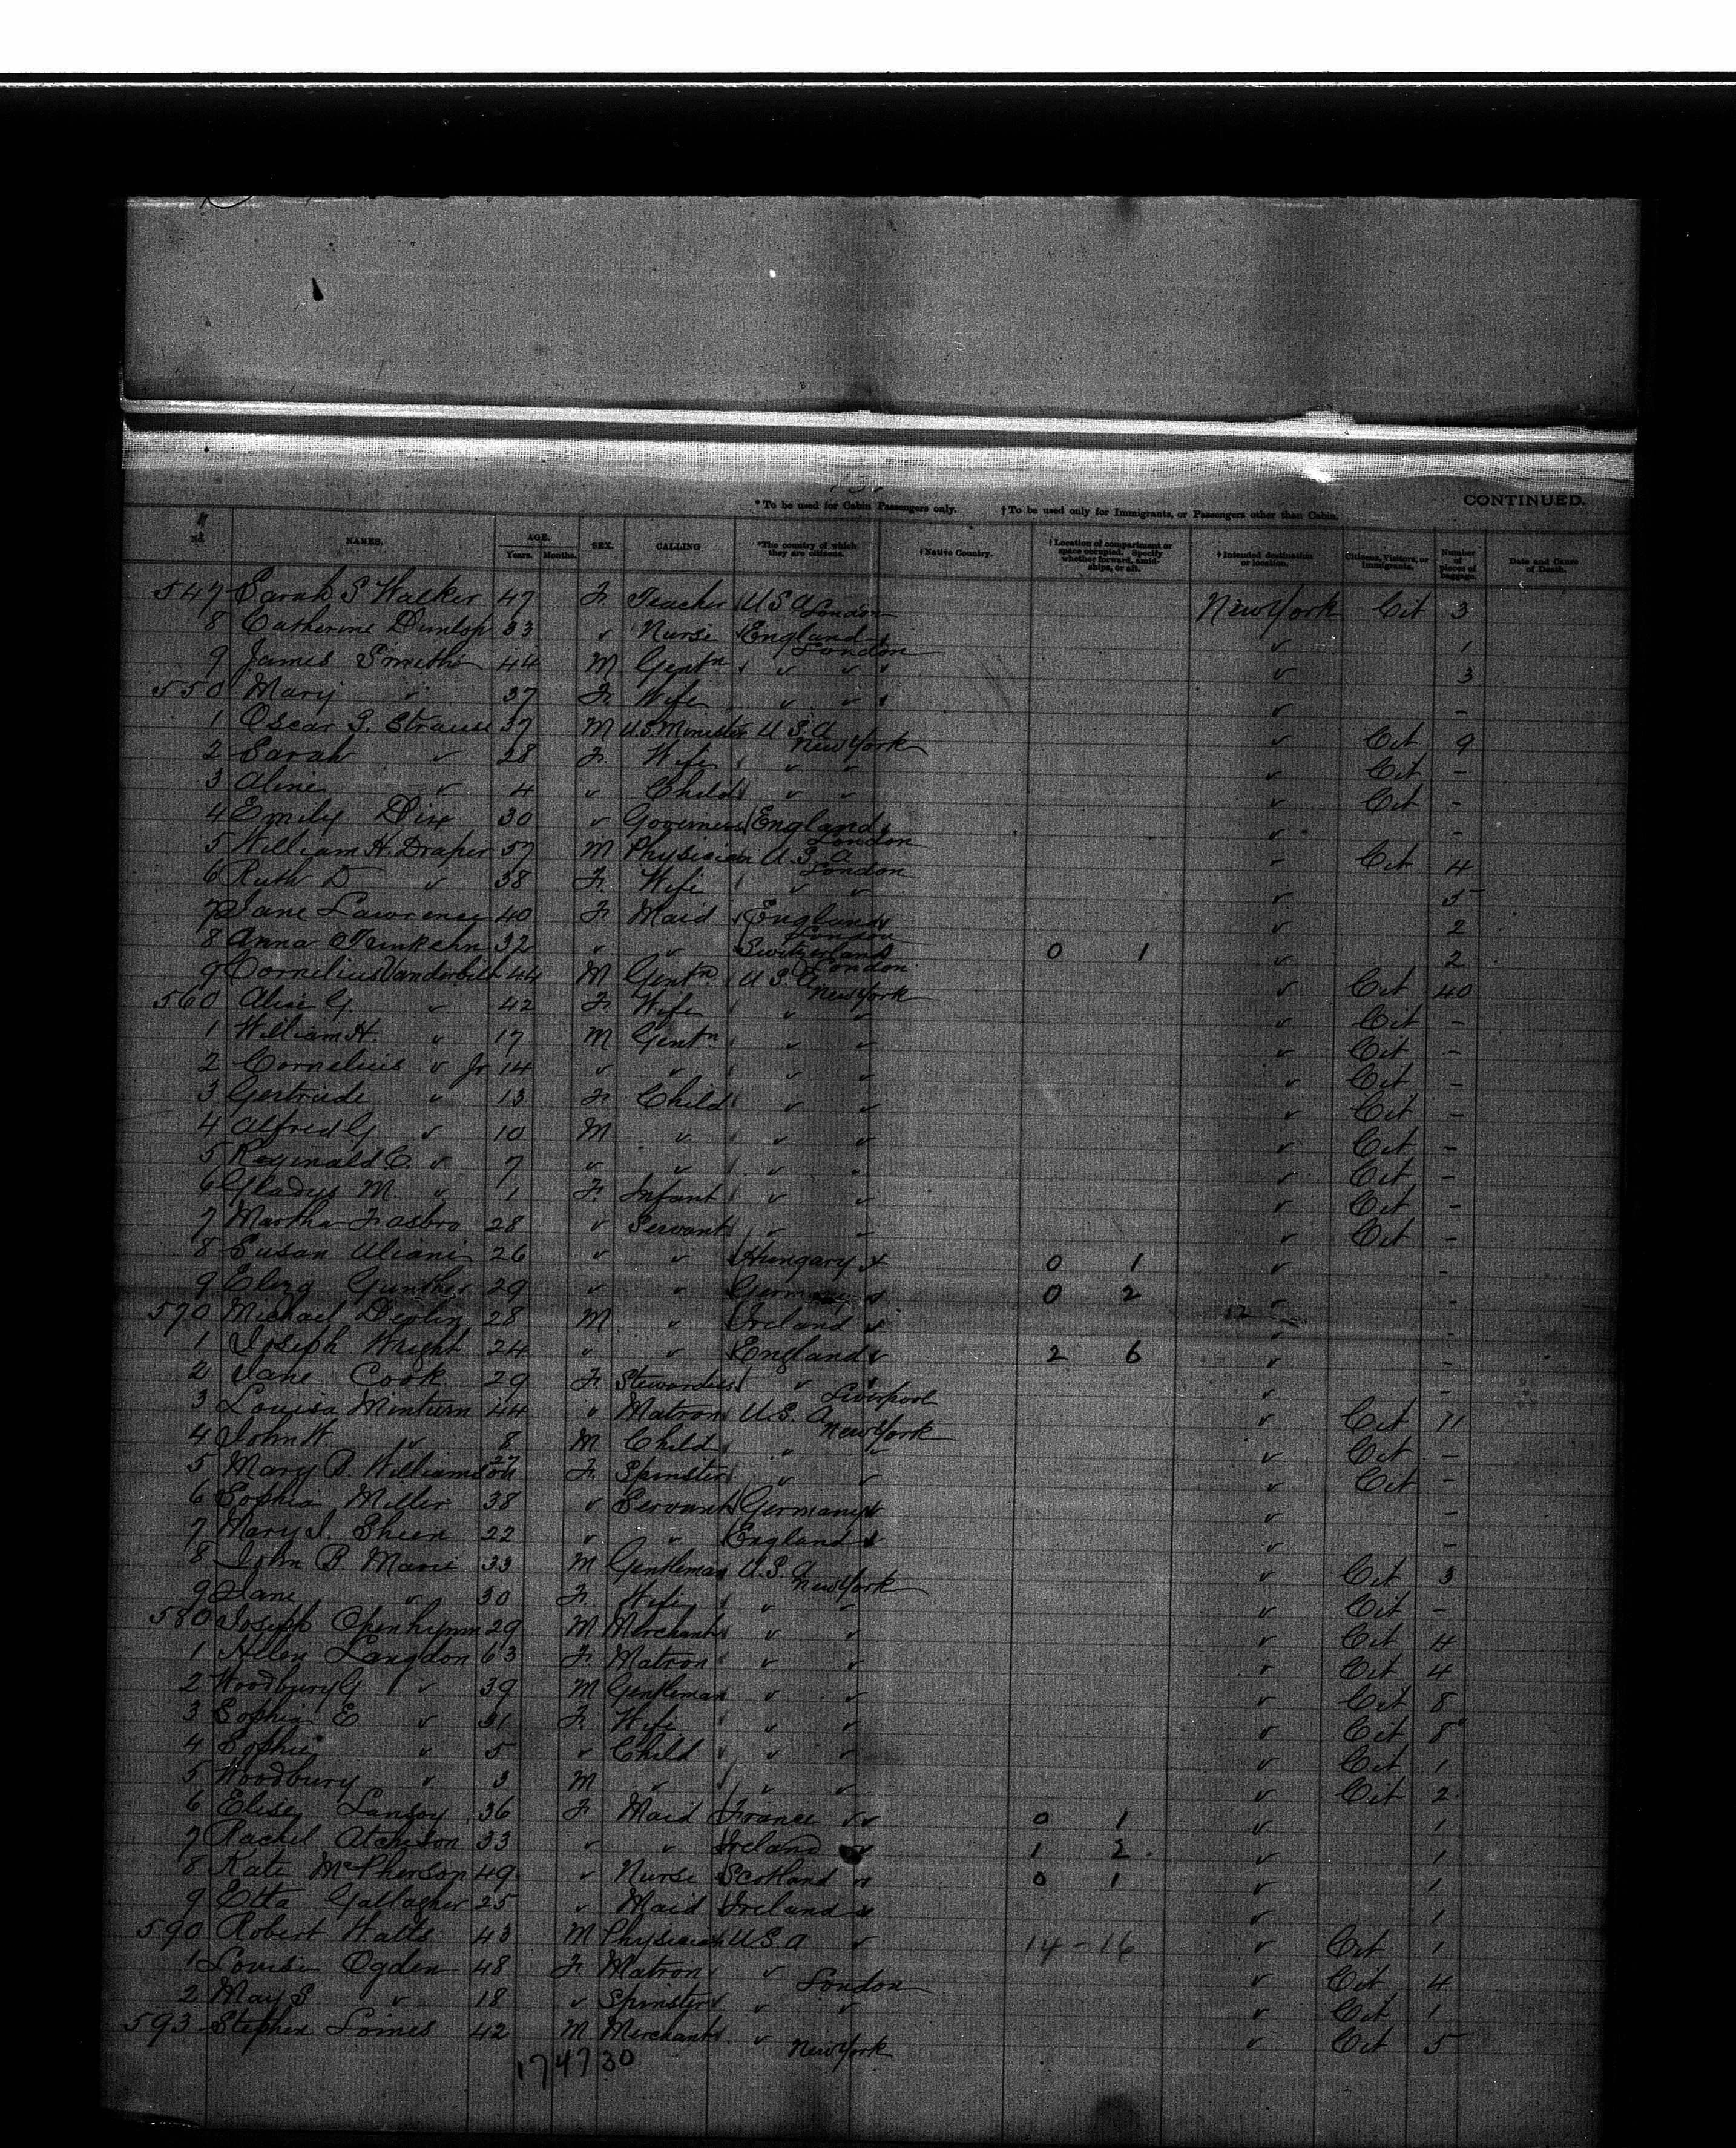 CONTINUED.
*To be used for Cabin Passengers only. †To be used only for Immigrants, or Passengers other than Cabin.
No. NAMES. AGE. Years. Months. SEX. CALLING *The country of which they are citizens. †Native Country. †Location of compartment or space occupied. Specify whether forward, amidships, or aft. †Intended destination or location. Citizens, Visitors, or Immigrants. Number of pieces of baggage. Date and Cause of Death.
547 Sarah S Walker 47 F. Teacher U S A London New York Cit 3
8 Catherine Dunlop 33 " Nurse England London " 1
9 James Smith 44 M Gentn " " " 3
550 Mary " 37 F. Wife " " " -
1 Oscar S. Strauss 37 M U.S. Minister U.S.A New York " Cit 9
2 Sarah " 28 F. Wife " " " Cit -
3 Aline " 4 " Child " " " Cit -
4 Emily Dix 30 " Governess England London " -
5 William H. Draper 57 M Physician U.S.A London " Cit 4
6 Ruth D " 38 F. Wife " " " 5
7 Jane Lawrence 40 F. Maid England London " 2
8 Anna 32 " " Switzerland London 0 1 " 2
9 Cornelius Vanderbilt 44 M Gentn U S A New York " Cit 40
560 Alice G. " 42 F. Wife " " " Cit -
1 William H. " 17 M Gentn " " " Cit -
2 Cornelius " Jr 14 " " " " " Cit -
3 Gertrude " 13 F. Child " " " Cit -
4 Alfred G " 10 M " " " " Cit -
5 Reginald C. " 7 " " " " " Cit -
6 Gladys M. " 1 F. Infant " " " Cit -
7 Martha Fasbro 28 " Servant " " " Cit -
8 Susan Uliani 26 " " Hungary 0 1 " -
9 Eliza Gunther 29 " " Germany 0 2 " -
570 Michael Devlin 28 M " Ireland 12 " -
1 Joseph Wright 24 " " England 2 6 " -
2 Jane Cook 29 F. Stewardess " Liverpool " -
3 Louisa Minturn 44 " Matron U.S.A New York " Cit 11
4 John W. " 8 M Child " " " Cit -
5 Mary B. Williamson 27 F. Spinster " " " Cit -
6 Sophia Miller 38 " Servant Germany " -
7 Mary J. Sheen 22 " " England " -
8 John B. Marie 33 M Gentleman U.S.A New York " Cit 3
9 Jane " 30 F. Wife " " " Cit -
580 Joseph Openhymn 29 M Merchant " " " Cit 4
1 Helen Langdon 63 F. Matron " " " Cit 4
2 Woodbury G " 39 M Gentleman " " " Cit 8
3 Sophia E " 31 F. Wife " " " Cit 8
4 Sophie " 5 " Child " " " Cit 1
5 Woodbury " 3 M " " " " Cit 2
6 Elisey Lansoy 36 F. Maid France 0 1 " 1
7 Rachel Atchison 33 " " Ireland 1 2 " 1
8 Kate McPherson 49 " Nurse Scotland 0 1 " 1
9 Etta Gallagher 25 " Maid Ireland " 1
590 Robert Watts 43 M Physician U.S.A " 14-16 " Cit 1
1 Louise Ogden 48 F. Matron " London " Cit 4
2 May S " 18 " Spinster " " " Cit 1
593 Stephen Loines 42 M Merchant " New York " Cit 5
174730